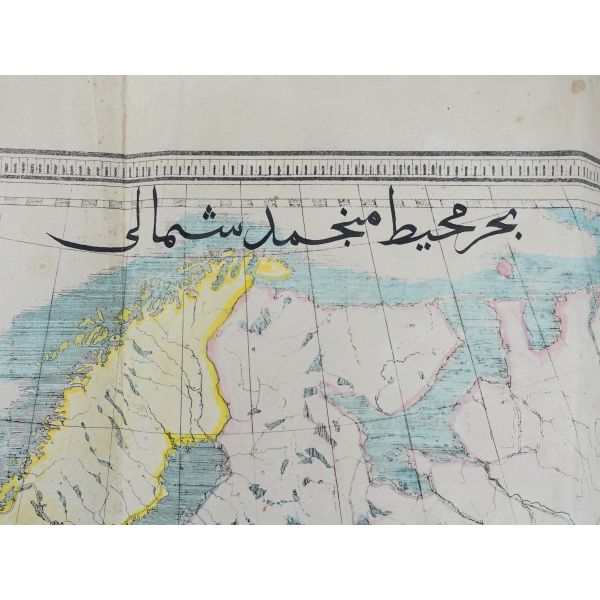 بحر محیط منجمد شمالی